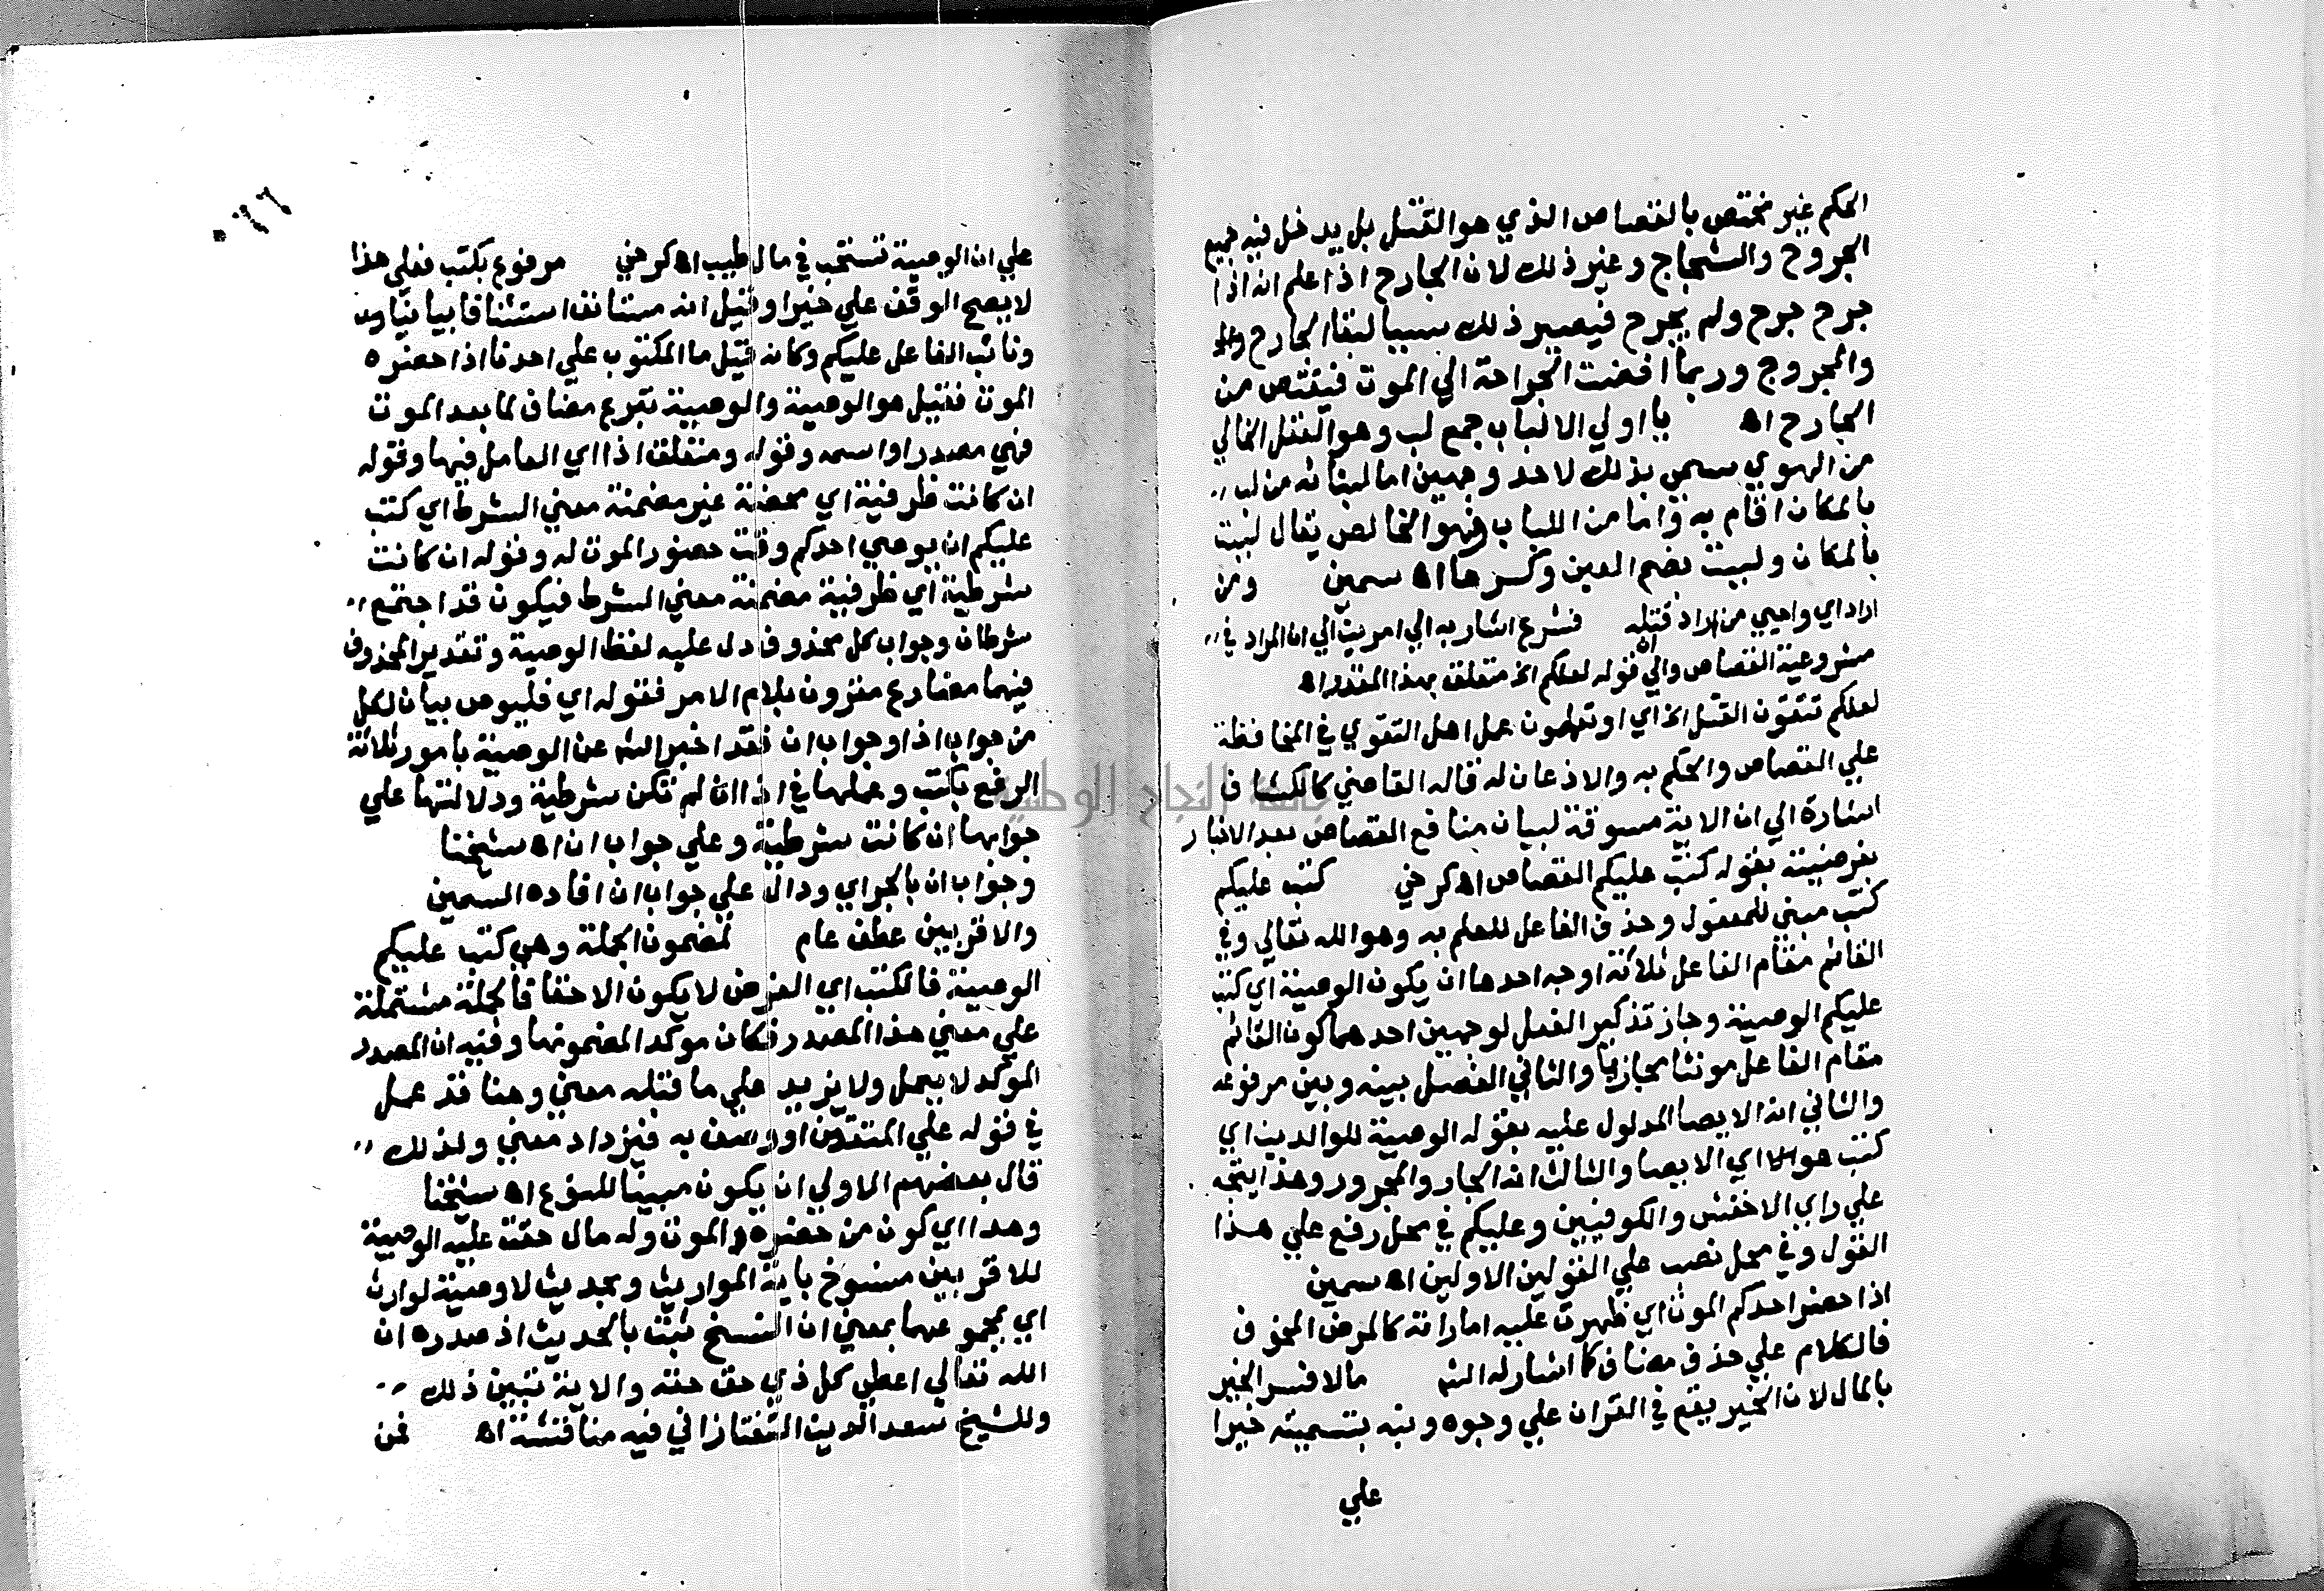 الحكم غير مختص بالقصاص الذي هو القتل بل يدخل فيه جميع
الجروح والشجاج وغير ذلك لان الجارح اذا علم انه اذا
جرح جرح ولم يجرح فيصير ذلك سببا لبقا الجارح
والمجروح وربما افضت الجراحة الي الموت فيقتص من
الجارح اه يا اولي الالباب جمع لب وهو العقل الخالي
من الهوي سمي بذلك لاحد وجهين اما لبنائه من لب
بالمكان اقام به واما من اللباب وهو الخالص يقال لببت
بالمكان ولببت بضم العين وكسرها اه سمين ومن
اراد اي واحيي من اراد قتله فشرع اشار به الي امرين الي ان المراد في
مشروعية القصاص والي ان قوله لعلكم الخ متعلق بهذا المقدر اه
لعلكم تتقون القتل الخ اي او تعملون عمل اهل التقوي في المحافظة
علي القصاص والحكم به والاذعان له قاله القاضي كالكشاف
اشارة الي ان الاية مسوقة لبيان منافع القصاص بعد الاخبار
بفرضيته بقوله كتب عليكم القصاص اه كرخي كتب عليكم
كتب مبني للمفعول وحذف الفاعل للعلم به وهو الله تعالي وفي
القائم مقام الفاعل ثلاثة اوجه احدها ان يكون الوصية اي كتب
عليكم الوصية وجاز تذكير الفعل لوجهين احدهما كون القائم
مقام الفاعل مونثا مجازيا والثاني الفصل بينه وبين مرفوعه
والثاني انه الايصا المدلول عليه بقوله الوصية للوالدين اي
كتب هو اي الايصا والثالث انه الجار والمجرور وهذا يتجه
علي راي الاخفش والكوفيين وعليكم في محل رفع علي هذا
القول وفي محل نصب علي القولين الاولين اه سمين
اذا حضر احدكم الموت اي ظهرت عليه اماراته كالمرض المخوف
فالكلام علي حذف مضاف كما اشار له الش مالا فسر الخير
بالمال لان الخير يقع في القران علي وجوه ونبه بتسميته خيرا
علي
٠٦٦
علي ان الوصية تستحب في مال طيب اه كرخي مرفوع بكتب فعلي هذا
لا يصح الوقف علي خيرا وقيل انه مستانف استئنافا بيانيا
ونائب الفاعل عليكم وكانه قيل ما المكتوب علي احدنا اذا حضره
الموت فقيل هو الوصية والوصية تبرع مضاف لما بعد الموت
فهي مصدر او اسمه وقوله ومتعلق اذا اي العامل فيها وقوله
ان كانت ظرفية اي محضة غير مضمنة معني الشرط اي كتب
عليكم ان يوصي احدكم وقت حضور الموت له وقوله ان كانت
شرطية اي ظرفية مضمنة معني الشرط فيكون قد اجتمع
شرطان وجواب كل محذوف دل عليه لفظ الوصية وتقدير المحذوف
فيهما مضارع مقرون بلام الامر فقوله اي فليوص بيان لكل
من جواب اذا وجواب ان فقد اخبر الش عن الوصية بامور ثلاثة
الرفع بكتب وعملها في اذا ان لم تكن شرطية ودلالتها علي
جوابها ان كانت شرطية وعلي جواب ان اه شيخنا
وجواب ان بالجر اي ودال علي جواب ان افاده السمين
والاقربين عطف عام لمضمون الجملة وهي كتب عليكم
الوصية فالكتب اي الفرض لا يكون الا حقا فالجملة مشتملة
علي معني هذا المصدر فكان موكدا لمضمونها وفيه ان المصدر
الموكد لا يعمل ولا يزيد علي ما قبله معني وهنا قد عمل
في قوله علي المتقين او وصف به فيزداد معني ولذلك
قال بعضهم الاولي ان يكون مبينا للنوع اه شيخنا
وهذا اي كون من حضره الموت وله مال حقت عليه الوصية
للاقربين منسوخ باية المواريث وبحديث لا وصية لوارث
اي بمجموعهما بمعني ان النسخ ثبت بالحديث اذ صدره ان
الله تعالي اعطي كل ذي حق حقه والاية تبين ذلك
وللشيخ سعد الدين التفتازاني فيه مناقشة اه فمن
جامعة النجاح الوطنية